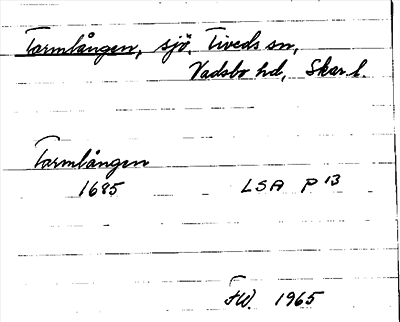 Tarmlången, sjö. Tiveds sn,
Vadsbo hd, Skar. l.
Tarmlången
1685 LSA P 13
FW. 1965